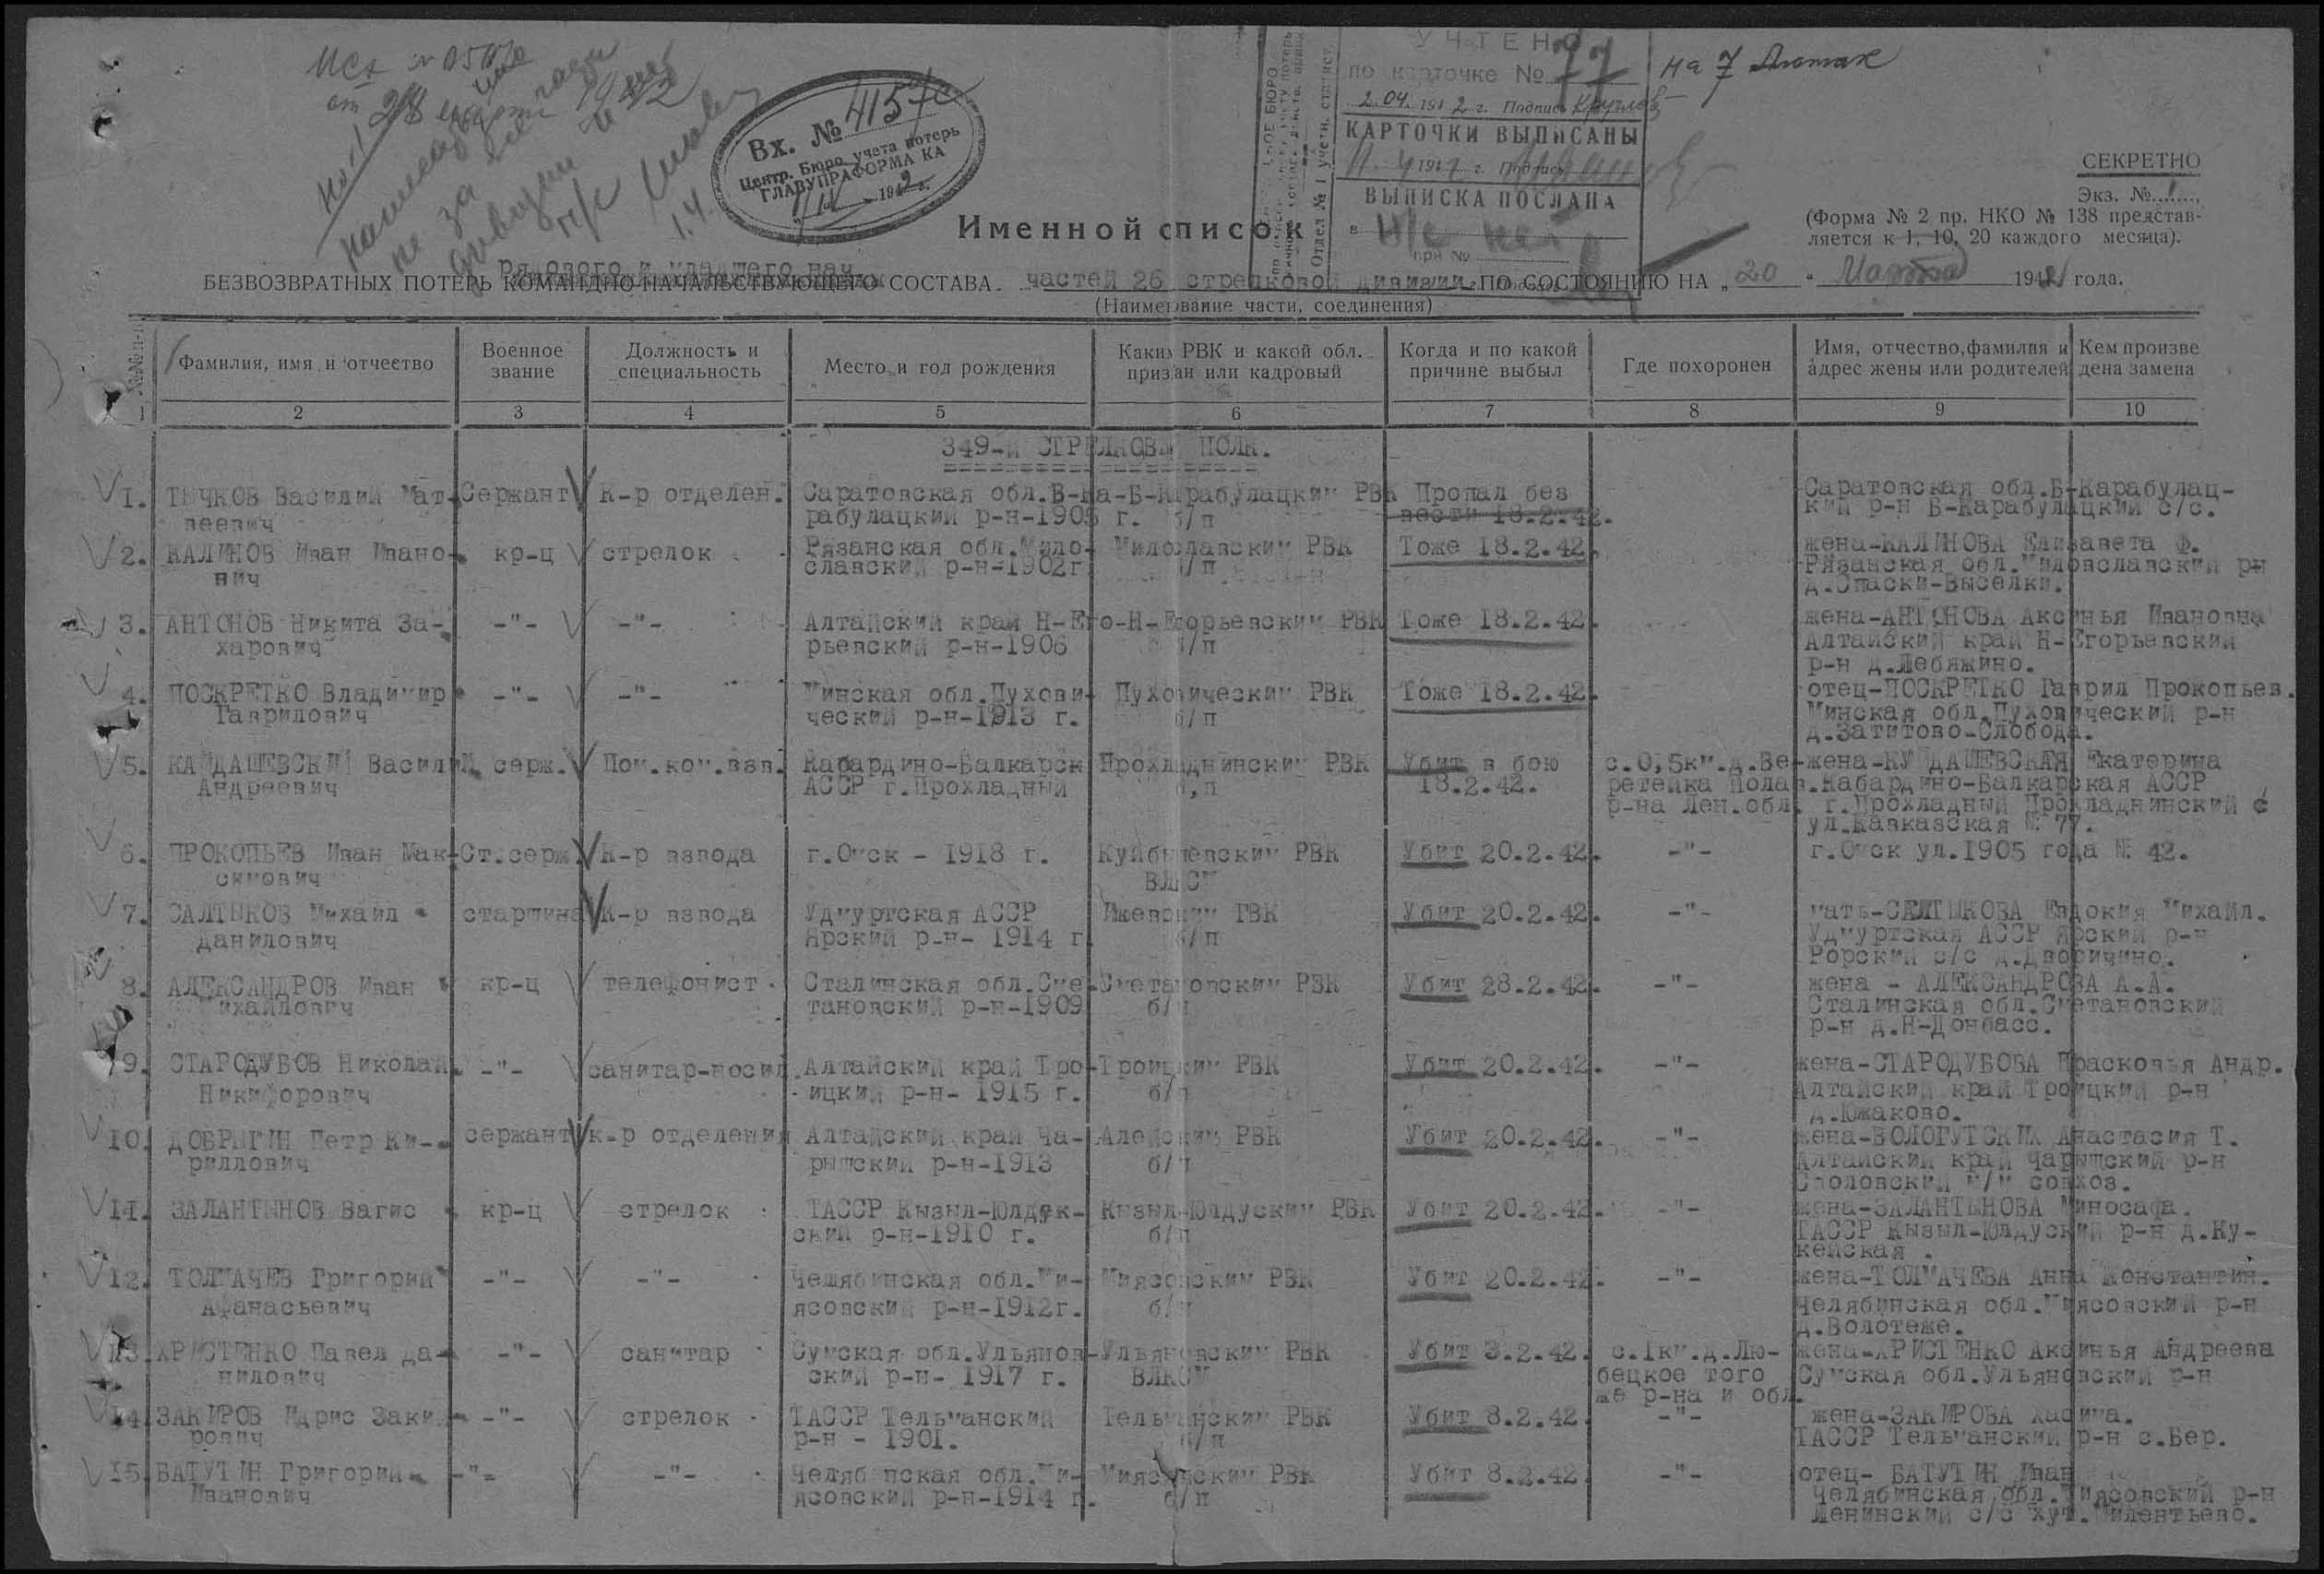 УЧТЕНО
по карточке № 77
на 7 листах
2.04. 1942 г. Подпись
КАРТОЧКИ ВЫПИСАНЫ
194 г. Подпись
ВЫПИСКА ПОСЛАНА
в
при №
Отдел № 1
от 28
Вх. № 4157с
Центр. Бюро учета потерь
ГЛАВУПРАФОРМА КА
1942 г.
1.4.
СЕКРЕТНО
Экз. № 1
(Форма № 2 пр. НКО № 138 представ-
ляется к 1, 10, 20 каждого месяца).
Именной список
рядового и младшего нач.
БЕЗВОЗВРАТНЫХ ПОТЕРЬ КОМАНДНО-НАЧАЛЬСТВУЮЩЕГО СОСТАВА частей 26 стрелковой дивизии ПО СОСТОЯНИЮ НА „20“ Марта 1942 года.
(Наименование части, соединения)
№№ п-п Фамилия, имя и отчество Военное звание Должность и специальность Место и год рождения Каким РВК и какой обл. призван или кадровый Когда и по какой причине выбыл Где похоронен Имя, отчество, фамилия и адрес жены или родителей Кем произведена замена
1 2 3 4 5 6 7 8 9 10
349-й СТРЕЛКОВЫЙ ПОЛК.
1. ТЫЧКОВ Василий Мат- Сержант К-р отделен. Саратовская обл.Б-Ка-Б-Карабулацким РВК Пропал без Саратовская обл.Б-Карабулац-
веевич рабулацкий р-н-1905 г. б/п вести 18.2.42. кий р-н Б-Карабулацкий с/с.
2. КАЛИНОВ Иван Ивано- кр-ц стрелок Рязанская обл.Мило- Милославским РВК Тоже 18.2.42. жена-КАЛИНОВА Елизавета Ф.
вич славский р-н-1902г б/п Рязанская обл.Милославский рн
д.Спаски-Выселки.
3. АНТОНОВ Никита За- -"- -"- Алтайский край Н-Его-Н-Егорьевским РВК Тоже 18.2.42. жена-АНТОНОВА Аксинья Ивановна
харович рьевский р-н-1906 б/п Алтайский край Н-Егорьевский
р-н д.Лебяжино.
4. ПОСКРЕТКО Владимир -"- -"- Минская обл.Пухови- Пуховическим РВК Тоже 18.2.42. отец-ПОСКРЕТКО Гаврил Прокопьев.
Гаврилович ческий р-н-1913 г. б/п Минская обл.Пуховический р-н
д.Затитово-Слобода.
5. КАЙДАШЕВСКИЙ Василий М.серж. Пом.ком.взв. Кабардино-Балкарск Прохладнинским РВК Убит в бою с.0,5км.д.Ве- жена-КУЙДАШЕВСКАЯ Екатерина
Андреевич АССР г.Прохладный б/п 18.2.42. ретейка Полав. Кабардино-Балкарская АССР
р-на Лен.обл. г.Прохладный Прохладнинский с
ул.Кавказская № 77.
6. ПРОКОПЬЕВ Иван Мак- Ст.серж. К-р взвода г.Омск - 1918 г. Куйбышевским РВК Убит 20.2.42. -"- г.Омск ул.1905 года № 42.
симович ВЛКСМ
7. САЛТЫКОВ Михаил старшина К-р взвода Удмуртская АССР Ижевским ГВК Убит 20.2.42. -"- мать-САЛТЫКОВА Евдокия Михайл.
Данилович Ярский р-н- 1914 г. б/п Удмуртская АССР Ярский р-н
Рорский с/с д.Дворичино.
8. АЛЕКСАНДРОВ Иван кр-ц телефонист Сталинская обл.Сме- Сметановским РВК Убит 28.2.42. -"- жена - АЛЕКСАНДРОВА А.А.
Михайлович тановский р-н-1909 б/п Сталинская обл.Сметановский
р-н д.Н-Донбасс.
9. СТАРОДУБОВ Николай -"- санитар-носил. Алтайский край Тро- Троицким РВК Убит 20.2.42. -"- жена-СТАРОДУБОВА Прасковья Андр.
Никифорович ицкий р-н- 1915 г. б/п Алтайский край Троицкий р-н
д.Южаково.
10. ДОБРЫГИН Петр Ки- сержант к-р отделения Алтайский край Ча- Алейским РВК Убит 20.2.42. -"- жена-ВОЛОГУТСКИХ Анастасия Т.
риллович рышский р-н-1913 б/п Алтайский край Чарышский р-н
м/м совхоз.
11. ЗАЛАНТЫНОВ Вагис кр-ц стрелок ТАССР Кызыл-Юлдук- Кызыл-Юлдуским РВК Убит 20.2.42. -"- жена-ЗАЛАНТЫНОВА Миносафа.
ский р-н-1910 г. б/п ТАССР Кызыл-Юлдуский р-н д.Ку-
кейская.
12. ТОЛМАЧЕВ Григорий -"- -"- Челябинская обл.Ми- Миясовским РВК Убит 20.2.42. -"- жена-ТОЛМАЧЕВА Анна Константин.
Афанасьевич ясовский р-н-1912г. б/п Челябинская обл.Миясовский р-н
д.Волотеже.
13. ХРИСТЕНКО Павел Да- -"- санитар Сумская обл.Ульянов- Ульяновским РВК Убит 3.2.42. с.1км.д.Лю- жена-ХРИСТЕНКО Аксинья Андреевн
нилович ский р-н- 1917 г. ВЛКСМ бецкое того Сумская обл.Ульяновский р-н
же р-на и обл.
14. ЗАКИРОВ Идрис Заки- -"- стрелок ТАССР Тельманский Тельманским РВК Убит 8.2.42. -"- жена-ЗАКИРОВА Хасима.
рович р-н - 1901. б/п ТАССР Тельманский р-н с.Бер.
15. БАТУТИН Григорий -"- -"- Челябинская обл.Ми- Миясовским РВК Убит 8.2.42. -"- отец- БАТУТИН Иван
Иванович ясовский р-н-1914 г. б/п Челябинская обл.Миясовский р-н
Ленинский с/с хут.Милентьево.